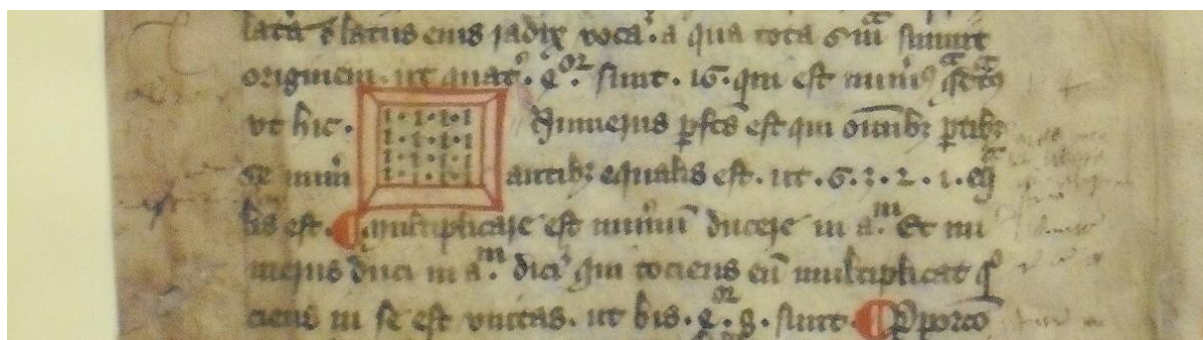 lata & latus eius radix voca. a qua tota sūma sumit
originem. ut quat. 4or. sunt. 16. qui est num9 qdtus
ut hic. 1.1.1.1
1.1.1.1
1.1.1.1
1.1.1.1
Numerus pfcs est qui omnibz ptibz
se num antibz equalis est. ut. 6. 3. 2. 1. eq
lis est. multiplicare est numū ducere in am. Et nu
merus duci in am. dicit qui tociens eū multiplicat q
ciens in se est unitas. ut bis. 4or. 8. sunt. Pporco